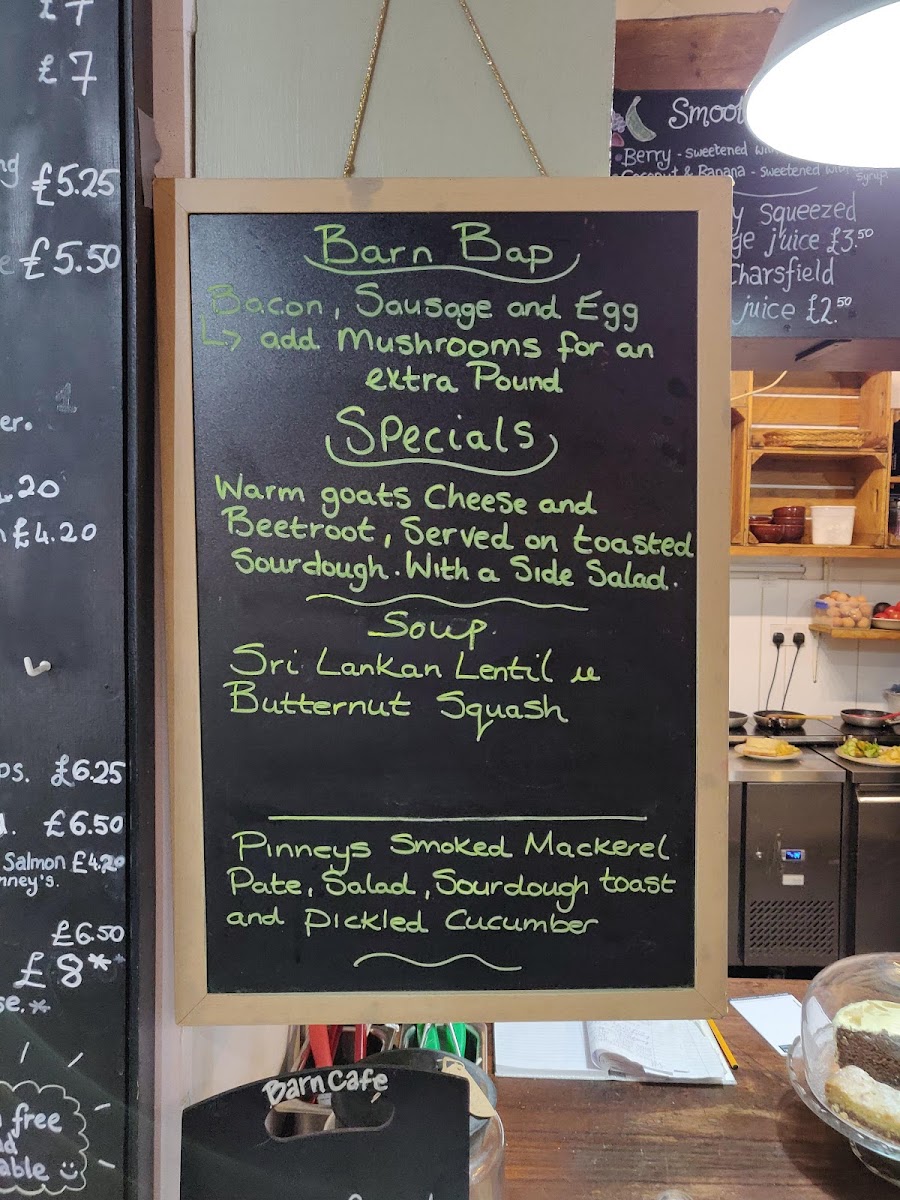 £7
£7
£5.25
£5.50
er.
.20
£4.20
£6.25
£6.50
Salmon £4.20
nney's.
£6.50
£8**
se.*
free
able
Barn Bap
Bacon, Sausage and Egg
↳ add Mushrooms for an
extra Pound
Specials
Warm goats Cheese and
Beetroot, Served on toasted
Sourdough. With a Side Salad.
Soup.
Sri Lankan Lentil
Butternut Squash
Pinneys Smoked Mackerel
Pate, Salad, Sourdough toast
and Pickled Cucumber
Barn Café
Smoot
Berry - sweetened with
Coconut & Banana - sweetened with
syrup
y Squeezed
ge juice £3.50
Charsfield
juice £2.50